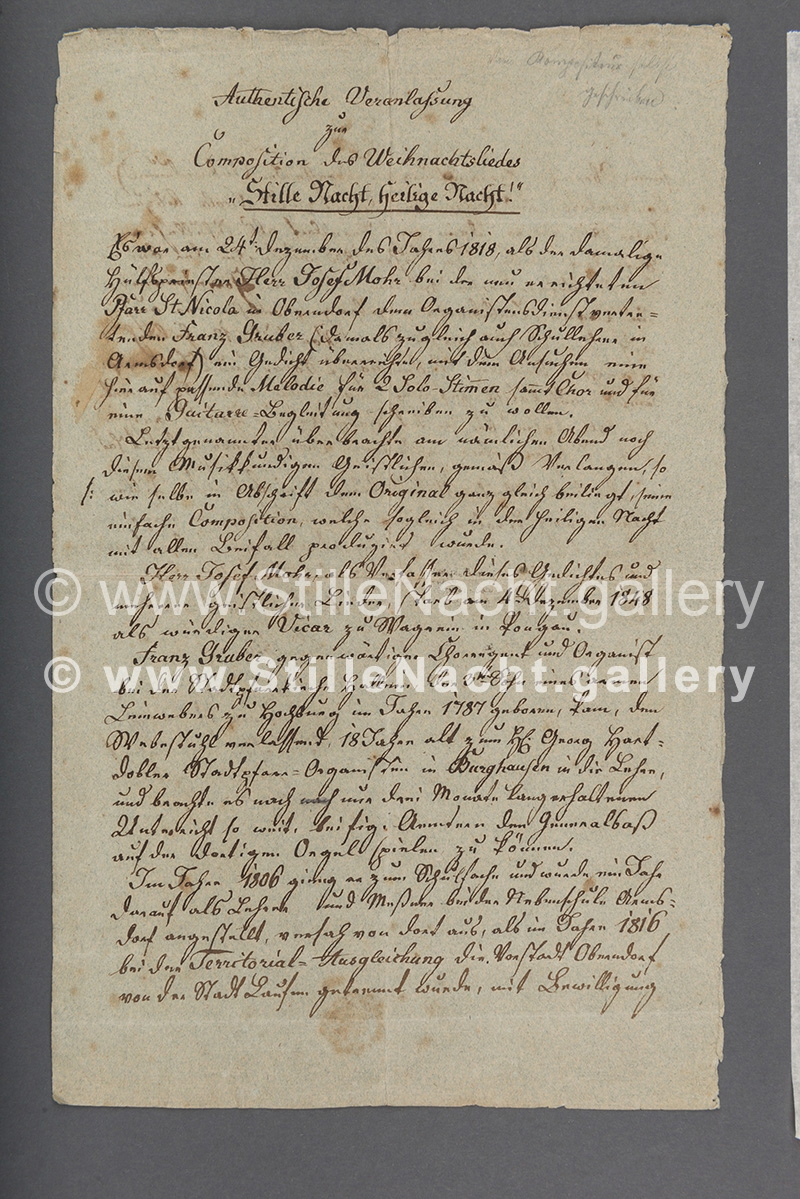 vom Kompositeur selbst
geschrieben
Authentische Veranlassung
zur
Composition des Weihnachtsliedes
„Stille Nacht, heilige Nacht!“
Es war am 24t. Dezember des Jahres 1818, als der damalige
Hülfspriester Herr Josef Mohr bei der neu errichteten
Pfarr St. Nicola in Oberndorf dem Organistensdienst vertre=
tenden Franz Gruber (damals zugleich auch Schullehrer in
Arnsdorf) ein Gedicht überreichte, mit dem Ansuchen eine
hierauf passende Melodie für 2 Solo-Stimmen sammt Chor und für
eine Guitarre=Begleitung schreiben zu wollen.
Letztgenannter überbrachte am nämlichen Abend noch
diesem Musikkundigen Geistlichen, gemäß Verlangen, so
/: wie selbe in Abschrift dem Original ganz gleich beiliegt, seine
einfache Composition, welche sogleich in der heiligen Nacht
mit allem Beifall produziert wurde.
Herr Josef Mohr, als Verfasser dieses Gedichtes und
mehrerer geistlicher Lieder, starb am 4ten Dezember 1848
als würdiger Vicar zu Wagrein in Pongau.
Franz Gruber gegenwärtiger Chorregent und Organist
bei der Stadtpfarrkirche Hallein, der Sohn eines armen
Leinwebers zu Hochburg im Jahre 1787 geboren, kam, den
Webestuhl verlassend, 18 Jahre alt zum H. Georg Hart=
dobler Stadtpfarr=Organisten in Burghausen in die Lehre,
und brachte es nach nur drei Monate lang erhaltenen
Unterricht so weit, bei fig. Aemtern den Generalbaß
auf der dortigen Orgel spielen zu können.
Im Jahre 1806 gieng er zum Schulfache und wurde ein Jahr
darauf als Lehrer und Meßner bei der Nebenschule Arns=
dorf angestellt, versah von dort aus, als im Jahre 1816
bei der Territorial=Ausgleichung die Vorstadt Oberndorf
von der Stadt Laufen getrennt wurde, mit Bewilligung
© www.StilleNacht.gallery
© www.StilleNacht.gallery